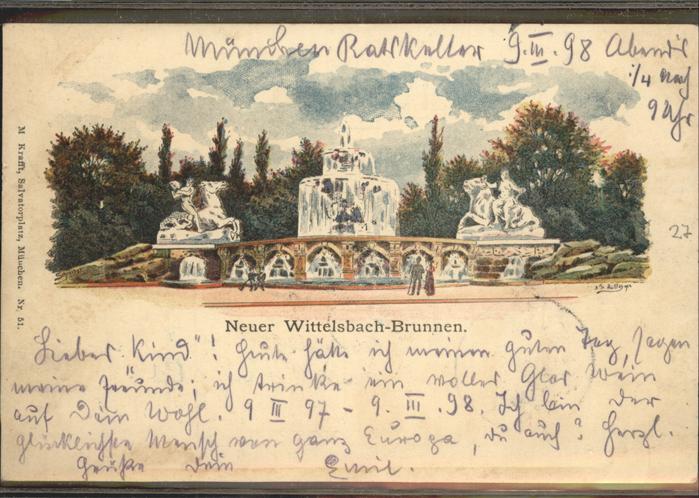 München Ratskeller 9.III.98 Abends
1/4 nach
9 Uhr
M Krafft, Salvatorplatz, München. Nr. 51.
27
Neuer Wittelsbach-Brunnen.
"Liebes Kind"! Heute hätte ich meinen guten Tag, sagen
meine Freunde; ich trinke ein volles Glas Wein
auf Dein Wohl. 9 III 97 - 9. III. 98. Ich bin der
glücklichste Mensch von ganz Europa, du auch? Herzl.
Grüße Dein Emil.